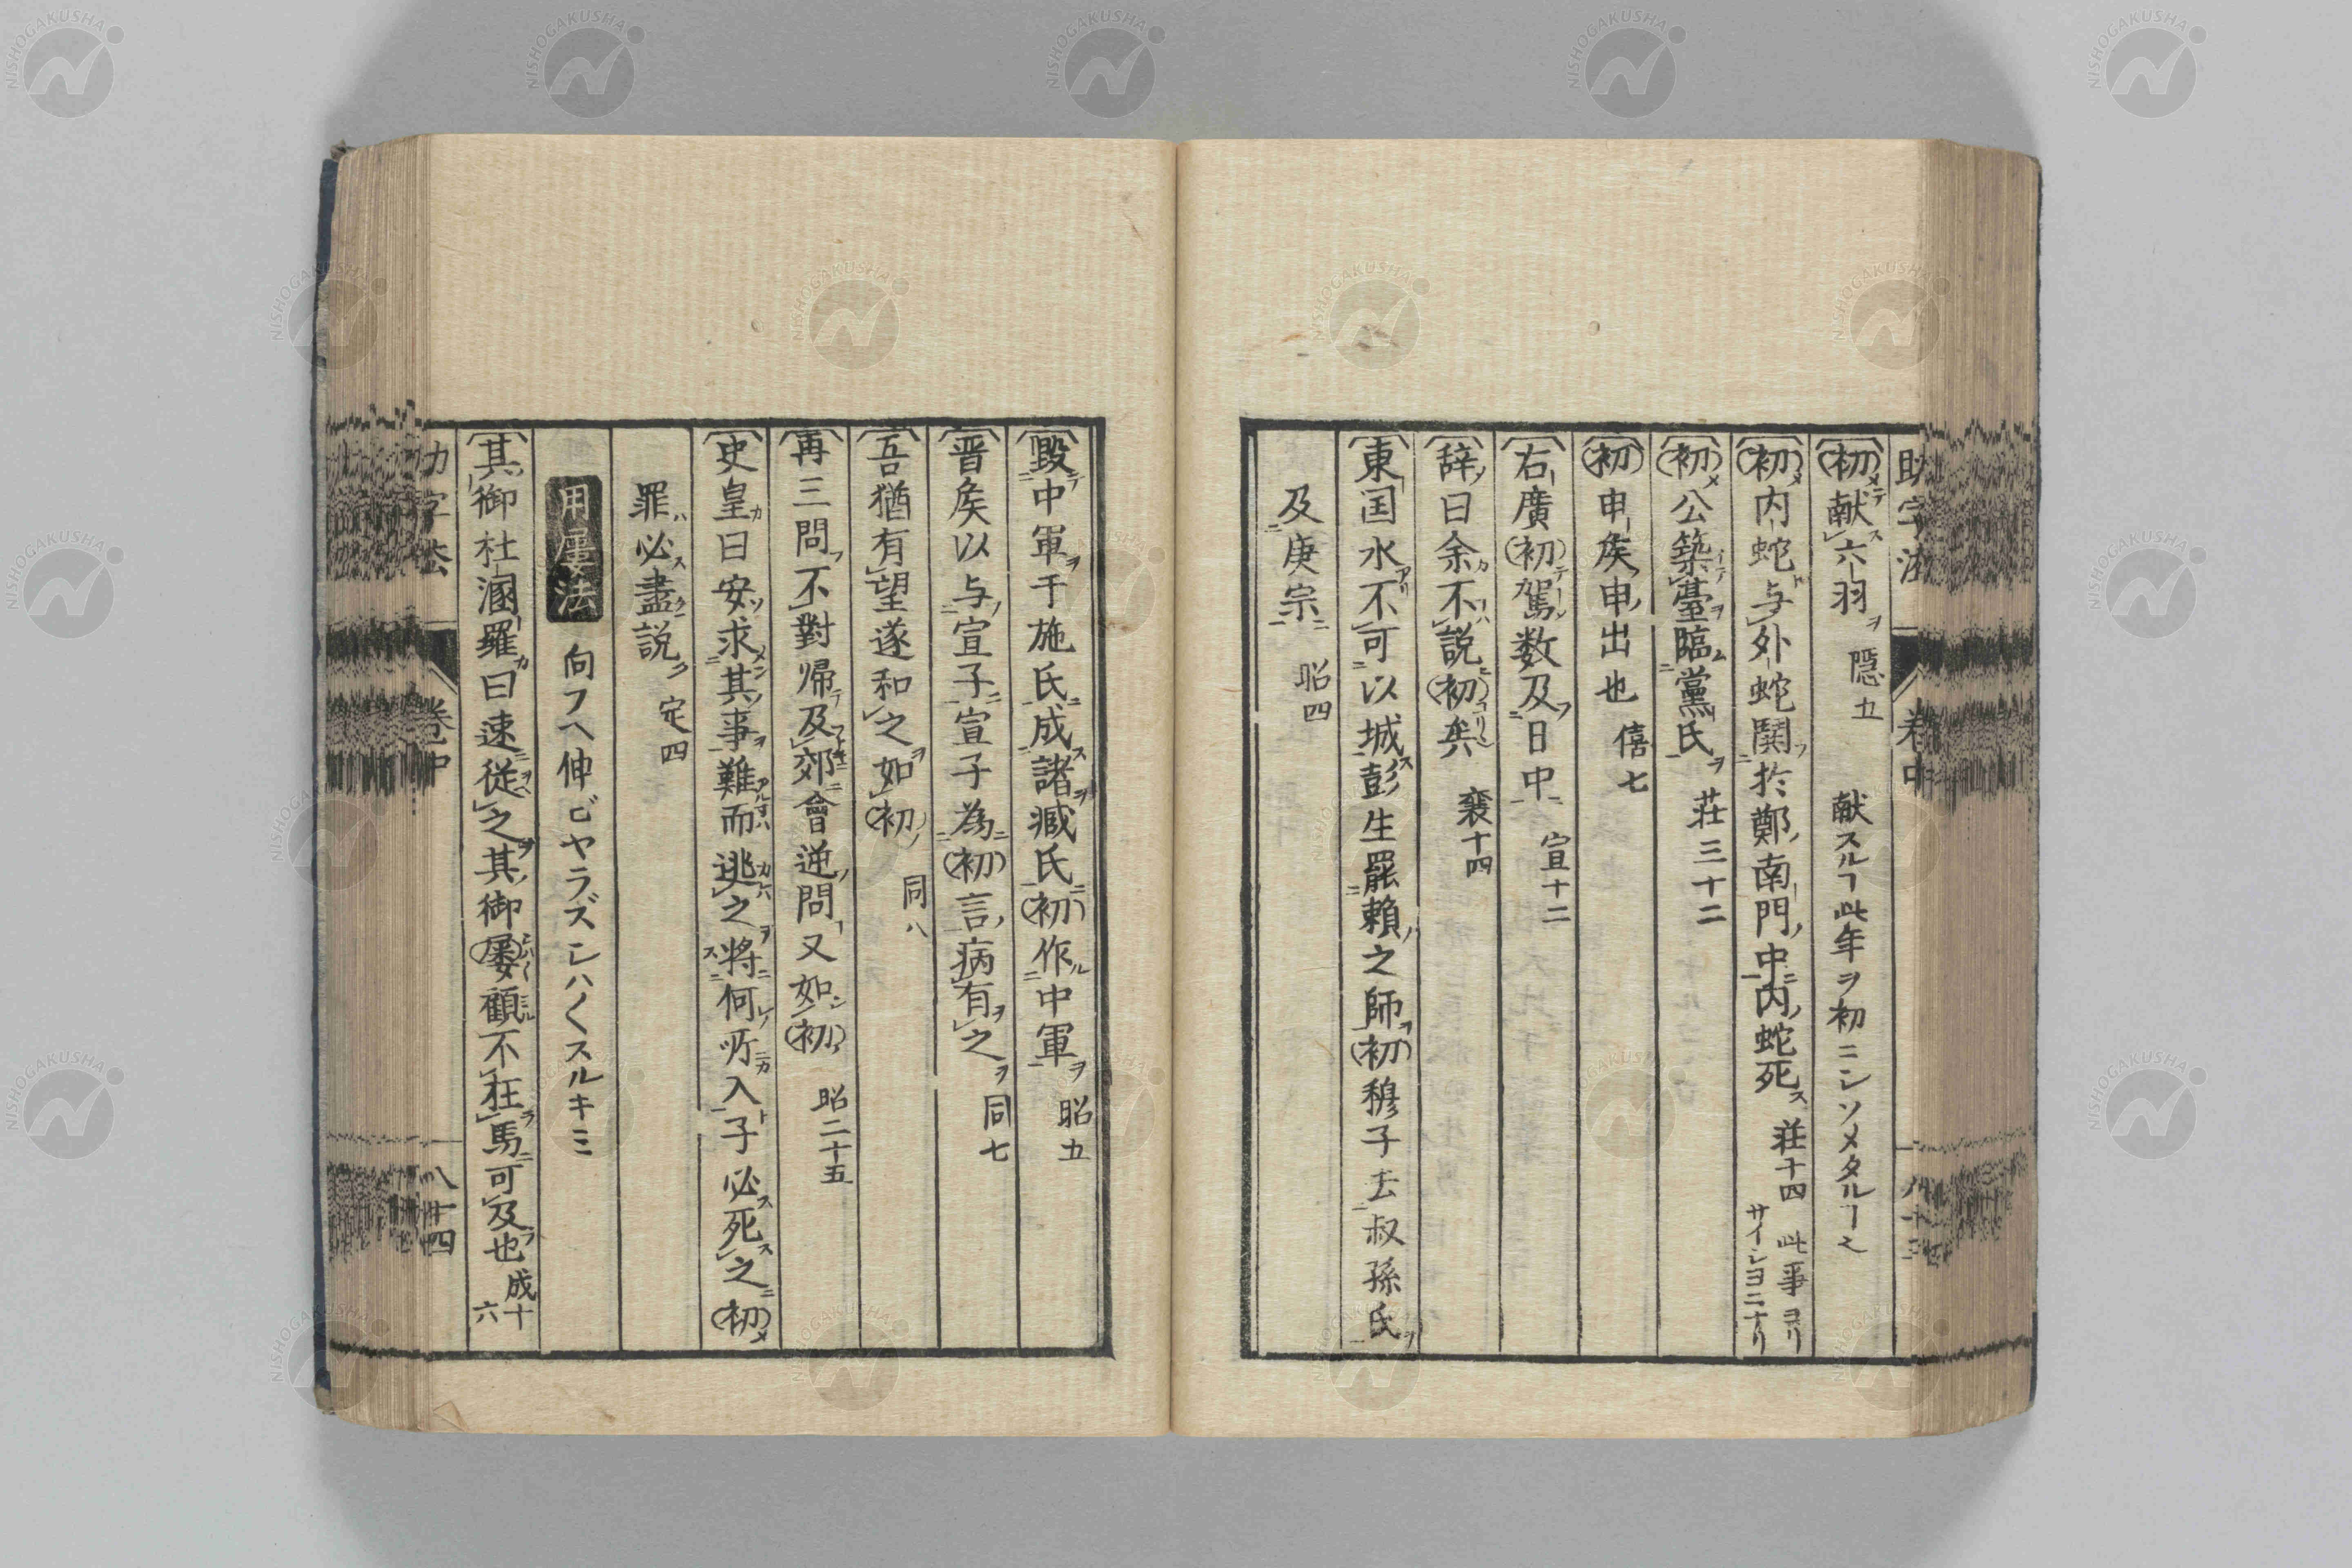 初献六羽 隠五 献スルヿ此年ヲ初ニシソメタルヿ也
初内蛇与外蛇鬪於鄭南門中内蛇死 荘十四 此事ヨリサイシヨニナリ
初公築臺臨黨氏 荘三十二
初申矦申出也 僖七
右廣初駕数及日中 宣十二
辞曰余不説初矣 襄十四
東国水不可以城彭生罷頼之師初穆子去叔孫氏
及庚宗 昭四
毀中軍于施氏成諸臧氏初作中軍 昭五
晋矦以与宣子宣子為初言病有之 同七
吾猶有望遂和之如初 同八
再三問不對帰及郊會逆問又如初 昭二十五
史皇曰安求其事難而逃之将何所入子必死之初
罪必盡説 定四
用屡法 向フヘ伸ビヤラズシハ〱スルキミ
其御杜溷羅曰速従之其御屡顧不在馬可及也 成十六
NISHOGAKUSHA